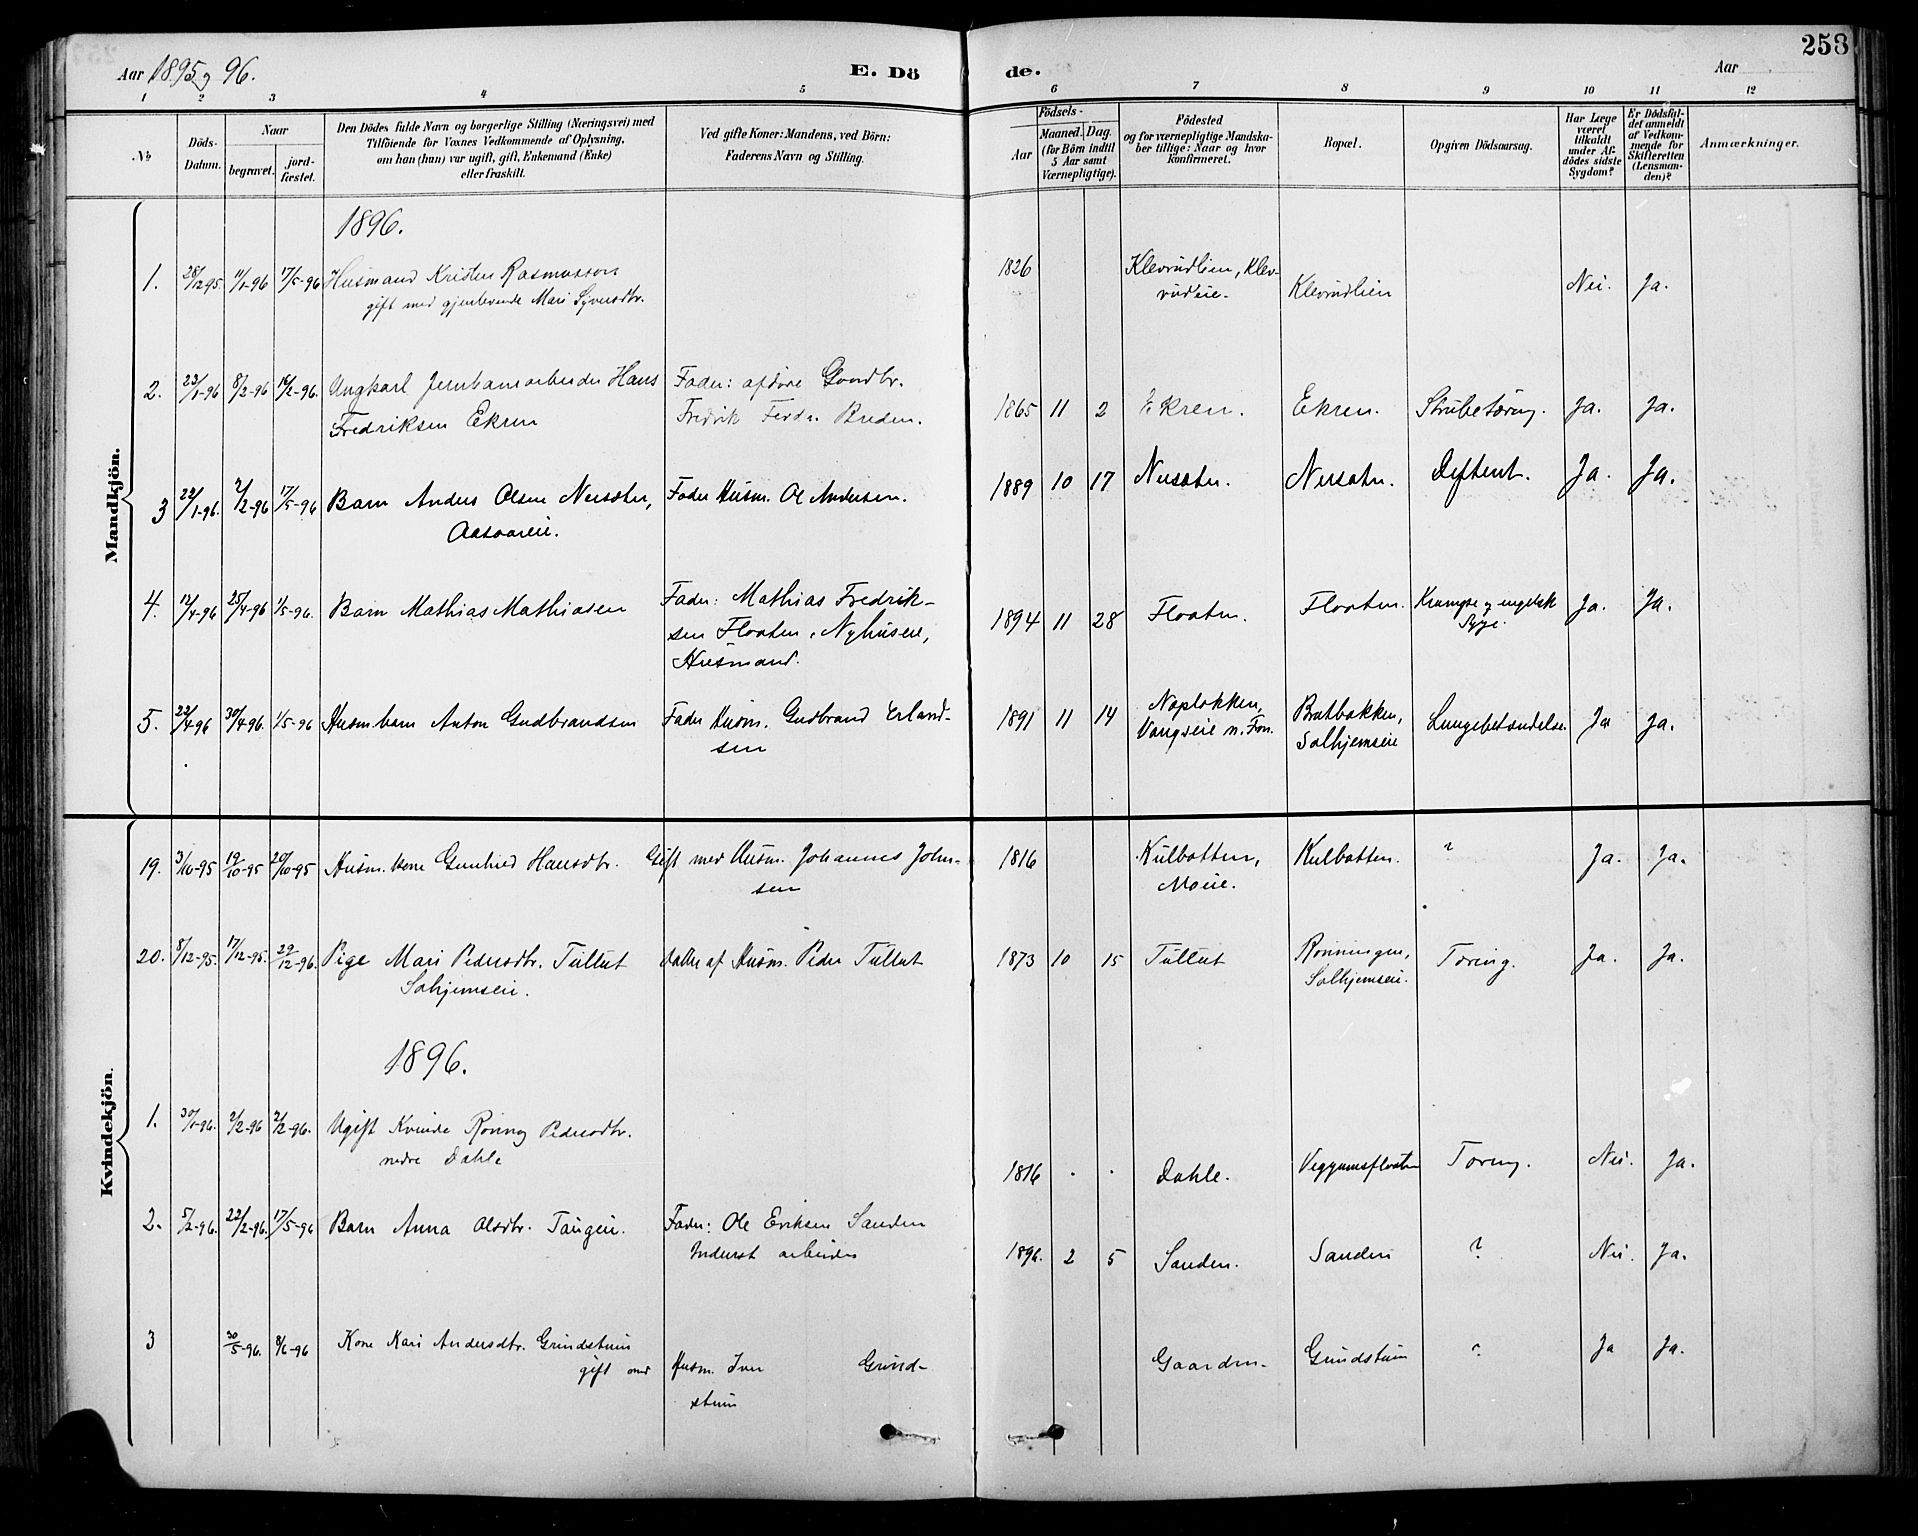 Aar 1895 og 96.
E. Dö
de.
Aar
258
1 2 3 4 5 6 7 8 9 10 11 12
No
Döds-Datum.
Naar
begravet.
jord-fæstet.
Den Dödes fulde Navn og borgerlige Stilling (Næringsvei) med
Tilföiende for Voxnes Vedkommende af Oplysning,
om han (hun) var ugift, gift, Enkemand (Enke)
eller fraskilt.
Ved gifte Koner: Mandens, ved Börn:
Faderens Navn og Stilling.
Födsels-
Aar
Maaned. Dag.
(for Börn indtil
5 Aar samt
Værnepligtige).
Födested
og for værnepligtige Mandska-
ber tillige: Naar og hvor
Konfirmeret.
Bopæl.
Opgiven Dödsaarsag.
Har Læge
været
tilkaldt
under Af-
dödes sidste
Sygdom?
Er Dödsfal-
det anmeldt
af Vedkom-
mende for
Skifteretten
(Lensman-
den)?
Anmærkninger.
Mandkjön.
1896.
1. 28/12-95. 11/1-96 17/5-96 Husmand Kristen Rasmusson 1826 Klevrudlien, Klev-
gift med gjenlevende Mari Syversdtr. rudeie. Klevrudlien Nei. Ja.
2. 23/1-96 8/2-96 16/2-96. Ungkarl Jernbanearbeider Hans Fader: afdöde Gaardbr.
Fredriksen Ekren Fredrik Breden. 1865 11 2 Ekren. Ekren. Strubetæring. Ja. Ja.
3 22/1-96. 2/2-96 17/5-96 Barn Anders Olsen Nersæter, Fader Husm. Ole Andersen. 1889 10 17 Nersætr. Nersætr. Difterit. Ja. Ja.
4. 12/4-96 25/4-96 1/5-96. Barn Mathias Mathiasen Fader: Mathias Fredrik-
sen Flaaten, Nyhuseie,
Husmand. 1894 11 28 Flaaten. Flaaten. Krampe og engelsk
Syge. Ja. Ja.
5. 22/4-96 30/4-96. 1/5-96 Husm. barn Anton Gudbrandsen Fader Husm. Gudbrand Erland-
sen 1891 11 14 Vangseie n. Fron. Bratbakken,
Solhjemseie Lungebetændelse. Ja Ja.
Kvindekjön.
19. 3/10-95 19/10-95 20/10-95 Husm. kone Gunhild Hansdtr. Gift med Husm. Johannes Johan-
sen 1816 Kulbotten,
Moeie. Kulbotten. ? Ja. Ja.
20. 8/12-95. 17/12-95. 29/12-96. Pige Mari Pedersdtr. Tullut datter af Husm. Peder Tullut 1873 10 15 Tullut Rønningen,
Solhjemseie. Solhjemseie. Tæring. Ja. Ja.
1896.
1. 30/1-96. 2/2-96 2/2-96. Ugift Kvinde Rønnog Pedersdtr.
nedre Dahle 1816 . . Dahle. Veggumsflaaten Tæring. Nei. Ja.
2. 5/2-96. 22/2-96. 17/5-96 Barn Anna Olsdtr. Fader: Ole Eriksen Sanden
Inderst arbeider 1896. 2 5 Sanden. Sanden ? Nei. Ja.
3 30/5-96. 8/6-96 Kone Kari Andersdtr. Grindstuen
gift med Husm. Iver Grind-
stuen Gaarden. Grindstuen ? Ja Ja.